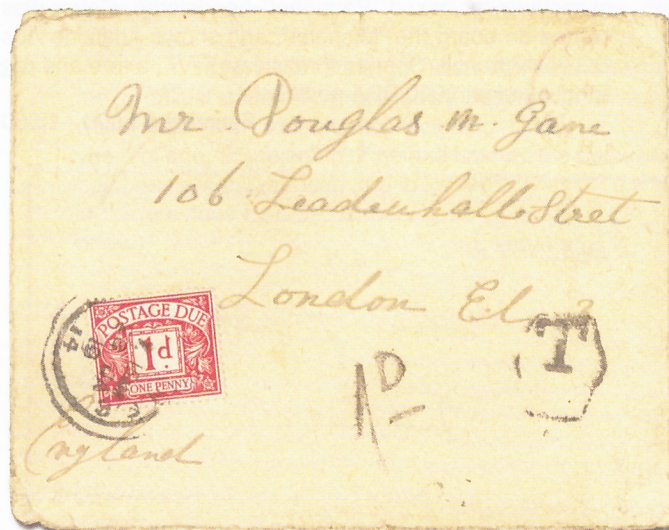 Mr. Douglas M. Gane
106 Leadenhall Street
London E.C. 3
T
POSTAGE DUE
1d.
ONE PENNY
1D
England
14